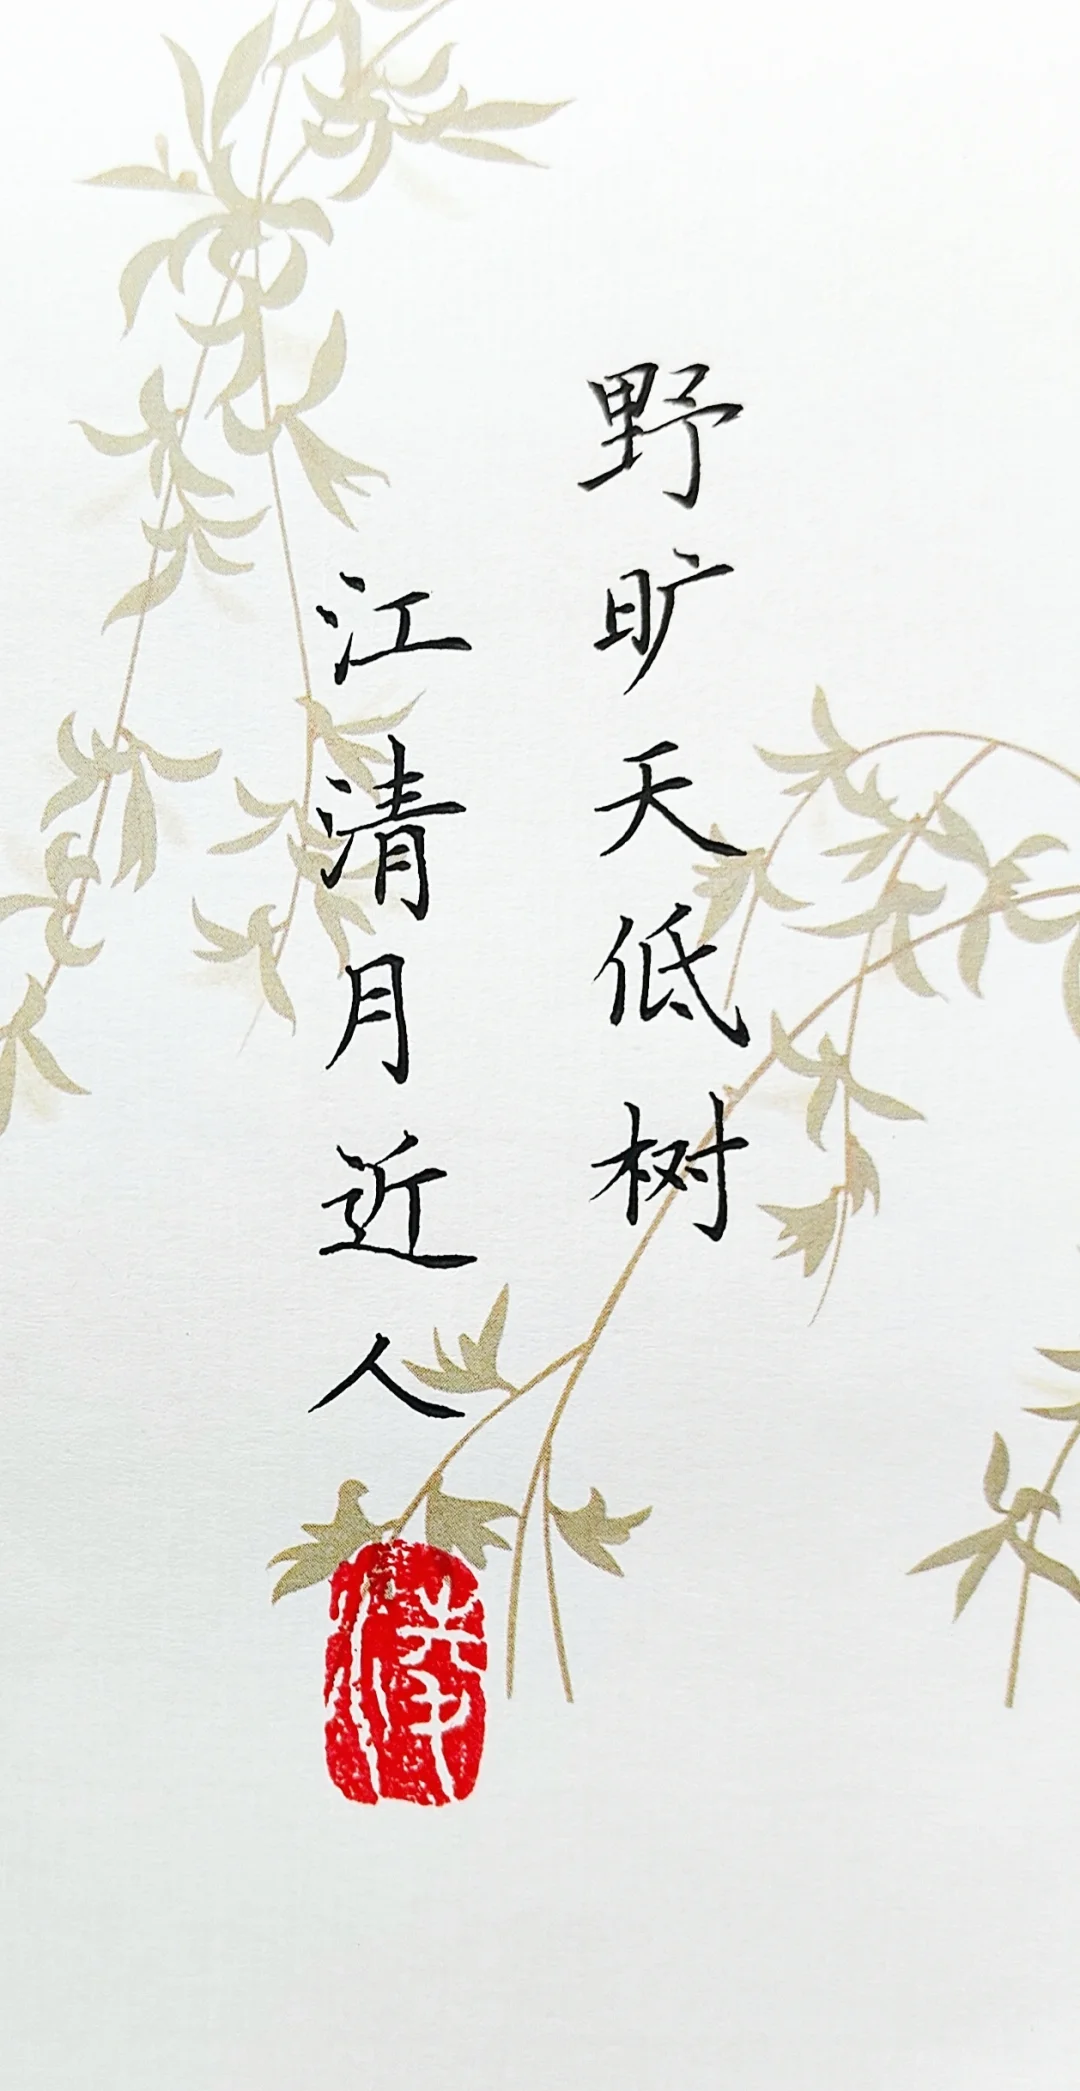 野旷天低树
江清月近人